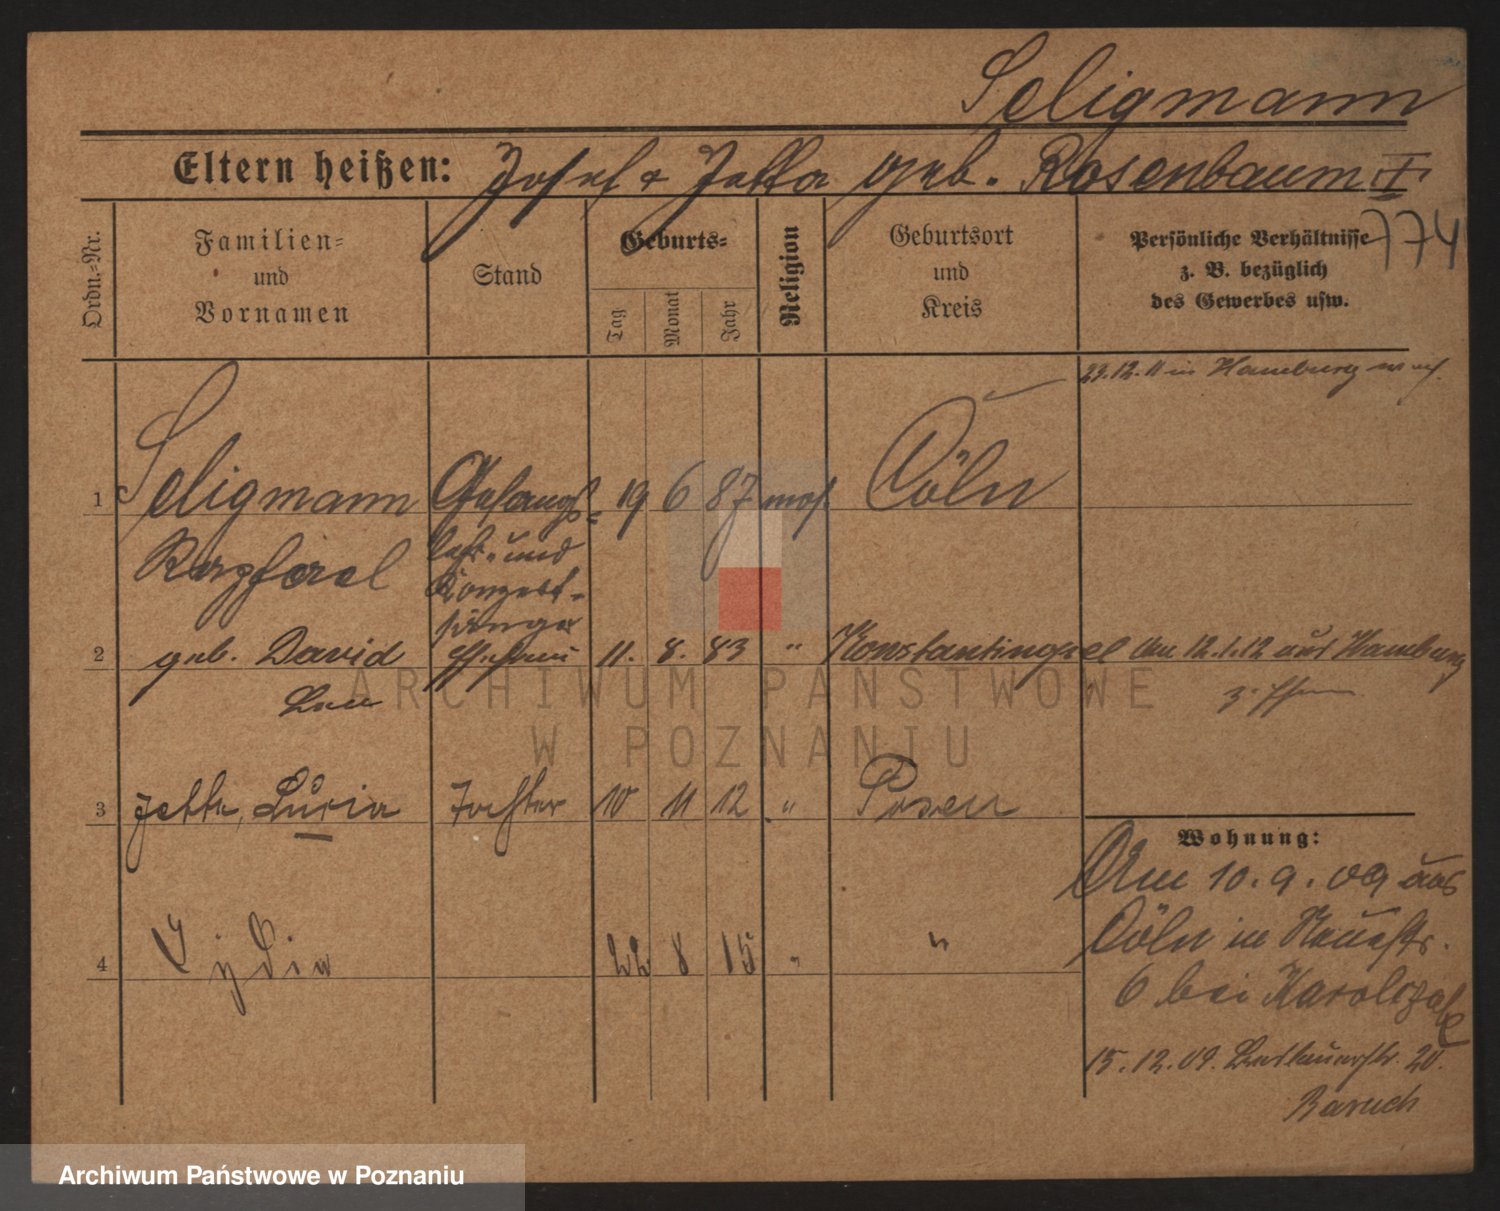 Seligmann
Eltern heißen: Josef & Jetta geb. Rosenbaum I
774
Ordn.-Nr.
Familien-
und
Vornamen
Stand
Geburts-
Tag
Monat
Jahr
Religion
Geburtsort
und
Kreis
Persönliche Verhältnisse
z. B. bezüglich
des Gewerbes usw.
29.12.11 in Hamburg
1 Seligmann Gesangs- 19 6 87 mos. Cöln
und
Konzert-
sänger
2 geb. David Ehefrau 11. 8. 83 " Konstantinopel Am 12.1.12 aus Hamburg
3 Jetta, Lucia Tochter 10 11 12 " Posen
4 Lydia 22 8 15 " "
Wohnung:
Am 10.9.09 aus
Cöln in Neuestr.
6 bei
15.12.09. 20.
Baruch
ARCHIWUM PAŃSTWOWE
W POZNANIU
Archiwum Państwowe w Poznaniu